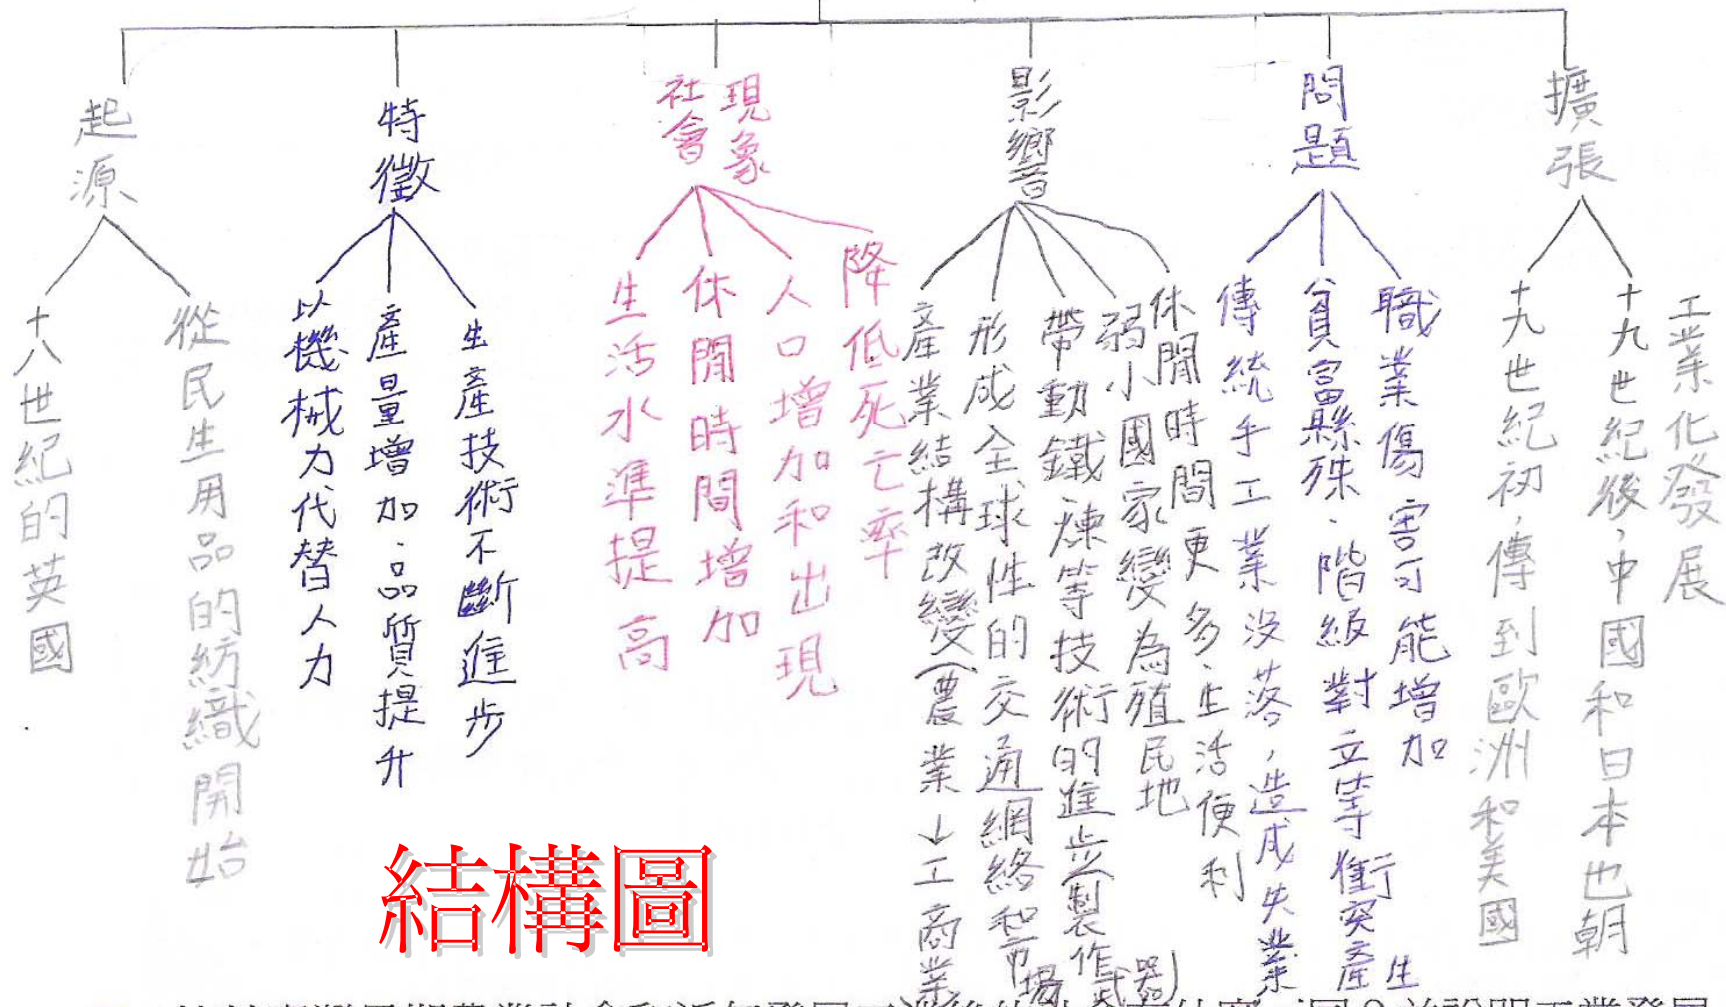 起源
十八世紀的英國
從民生用品的紡織開始
特徵
以機械力代替人力
產量增加、品質提升
生產技術不斷進步
社會
現象
生活水準提高
休閒時間增加
人口增加和出現
降低死亡率
影響
產業結構改變(農業→工商業)
形成全球性的交通網絡和市場
帶動鐵煉等技術的進步(製作武器)
弱小國家變為殖民地
休閒時間更多、生活便利
問題
傳統手工業沒落，造成失業
貧富縣殊、階級對立等衝突產生
職業傷害可能增加
擴張
十九世紀初，傳到歐洲和美國
十九世紀後，中國和日本也朝
工業化發展
結構圖